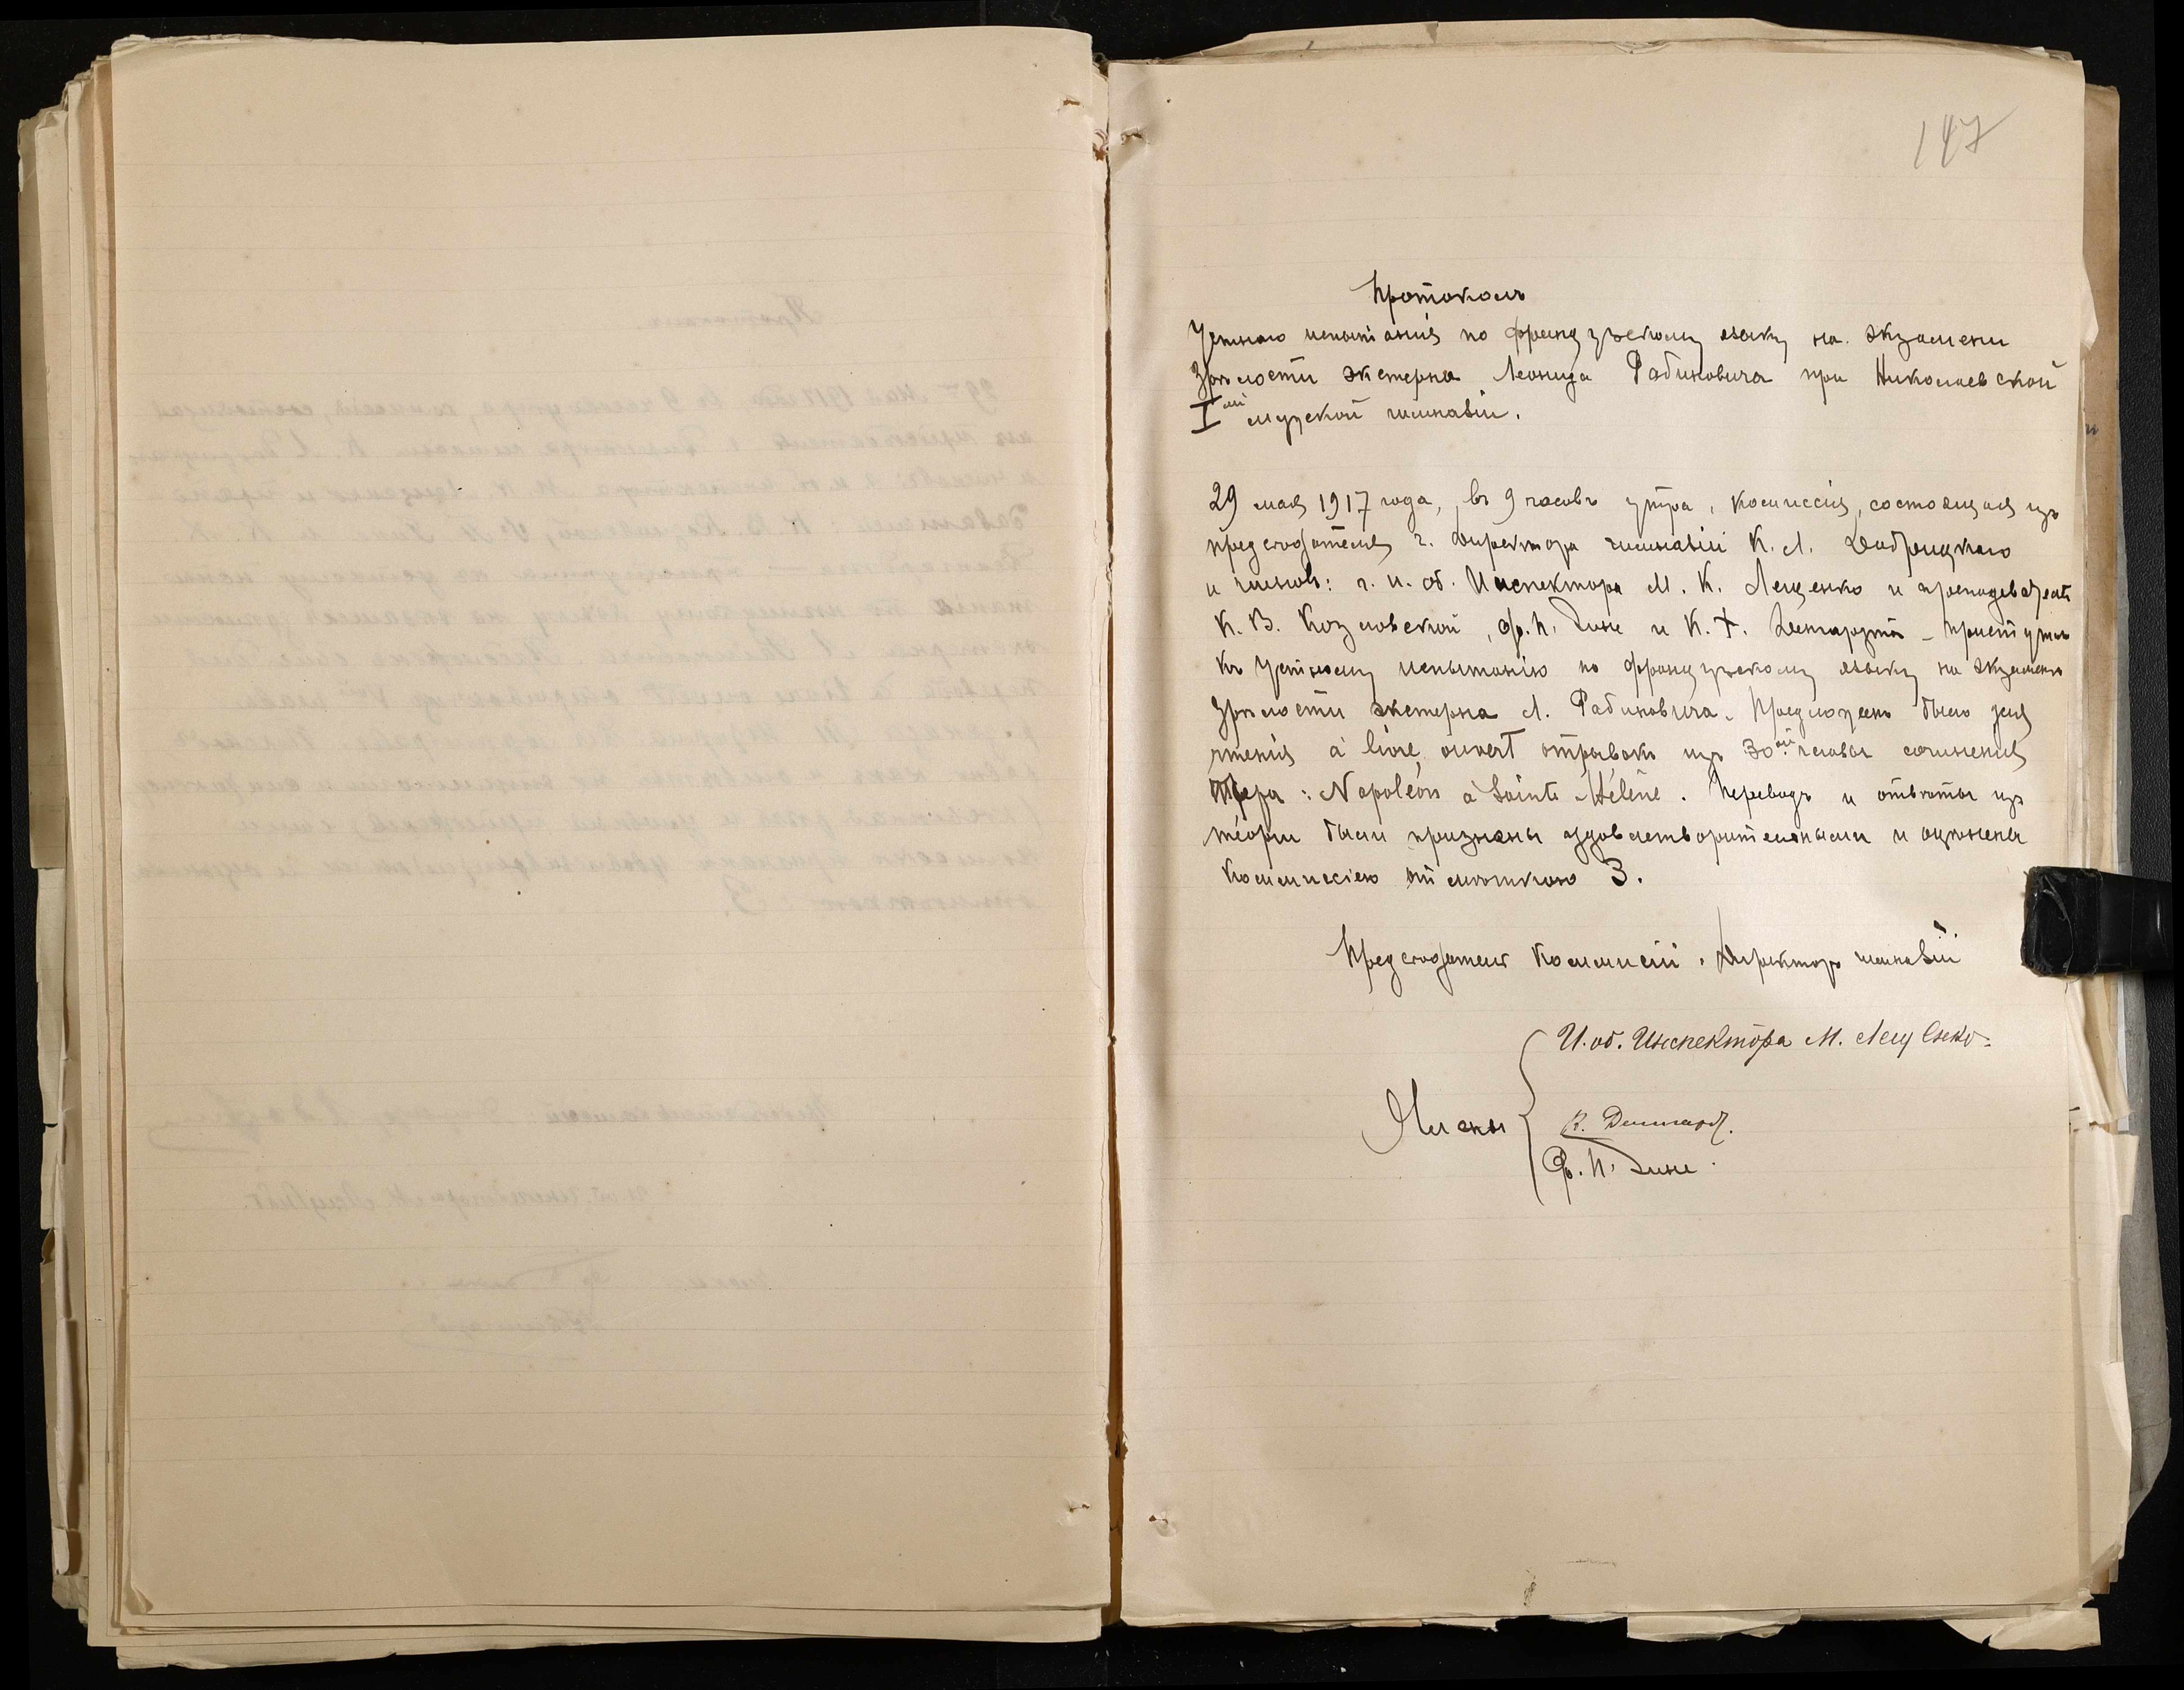 147
Протоколъ
Устнаго испытанія по французскому языку на экзамени
зрѣлости экстерна Леонида Рабиновича при Николаевской
I ой мужской гимназіи.
29 мая 1917 года, въ 9 часовъ утра, комиссія, состоящая изъ
предсѣдателя г. Директора гимназіи К. Л. Добрицкаго
и членовъ: г. и. об. Инспектора М. К. Лещенко и преподавател.
К. В. Козловской, Ф. П. Дине и К. Х. Денгардта - приступила
къ устному испытанію по французскому языку на экзаменѣ
зрѣлости экстерна Л. Рабиновича. Предложенъ былъ для
чтенія à livre ouvert отрывокъ изъ 30ой главы сочиненія
Тьера: Napoléon à Sainte Hélène. Переводъ и отвѣты изъ
теоріи были признаны удовлетворительными и оцѣнены
коммиссіею отмѣткою 3.
Предсѣдатель коммисіи, Директоръ гимназіи
И. об. Инспектора М. Лещенко.
Члены
К. Денгардт.
Ф. П. Дине.